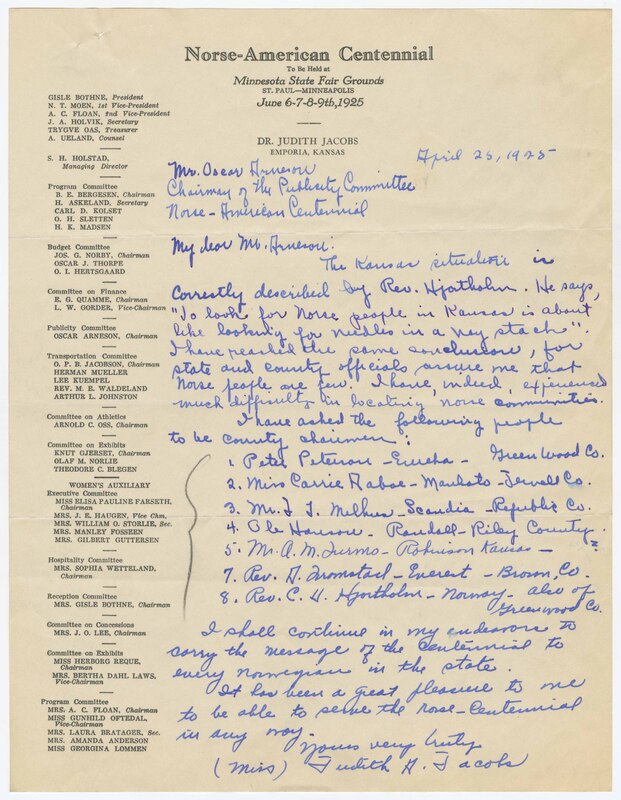 Norse-American Centennial
To Be Held at
Minnesota State Fair Grounds
ST. PAUL—MINNEAPOLIS
June 6-7-8-9th, 1925
DR. JUDITH JACOBS
EMPORIA, KANSAS
GISLE BOTHNE, President
N. T. MOEN, 1st Vice-President
A. C. FLOAN, 2nd Vice-President
J. A. HOLVIK, Secretary
TRYGVE OAS, Treasurer
A. UELAND, Counsel
S. H. HOLSTAD,
Managing Director
Program Committee
B. E. BERGESEN, Chairman
H. ASKELAND, Secretary
CARL D. KOLSET
O. H. SLETTEN
H. K. MADSEN
Budget Committee
JOS. G. NORBY, Chairman
OSCAR J. THORPE
O. I. HERTSGAARD
Committee on Finance
E. G. QUAMME, Chairman
L. W. GORDER, Vice-Chairman
Publicity Committee
OSCAR ARNESON, Chairman
Transportation Committee
O. P. B. JACOBSON, Chairman
HERMAN MUELLER
LEE KUEMPEL
REV. M. E. WALDELAND
ARTHUR L. JOHNSTON
Committee on Athletics
ARNOLD C. OSS, Chairman
Committee on Exhibits
KNUT GJERSET, Chairman
OLAF M. NORLIE
THEODORE C. BLEGEN
WOMEN'S AUXILIARY
Executive Committee
MISS ELISA PAULINE FARSETH,
Chairman
MRS. J. E. HAUGEN, Vice Chm.
MRS. WILLIAM O. STORLIE, Sec.
MRS. MANLEY FOSSEEN
MRS. GILBERT GUTTERSEN
Hospitality Committee
MRS. SOPHIA WETTELAND,
Chairman
Reception Committee
MRS. GISLE BOTHNE, Chairman
Committee on Concessions
MRS. J. O. LEE, Chairman
Committee on Exhibits
MISS HERBORG REQUE,
Chairman
MRS. BERTHA DAHL LAWS,
Vice-Chairman
Program Committee
MRS. A. C. FLOAN, Chairman
MISS GUNHILD OFTEDAL,
Vice-Chairman
MRS. LAURA BRATAGER, Sec.
MRS. AMANDA ANDERSON
MISS GEORGINA LOMMEN
April 25, 1925
Mr. Oscar Arneson
Chairman of the Publicity Committee
Norse-American Centennial
My dear Mr. Arneson:
The Kansas situation is
correctly described by Rev. Hjortholm. He says,
"To look for Norse people in Kansas is about
like looking for needles in a hay stack".
I have reached the same conclusion, for
state and county officials assure me that
Norse people are few. I have, indeed, experienced
much difficulty in locating norse communities.
I have asked the following people
to be county chairmen:
1 Peter Peterson - Eureka - Greenwood Co.
2. Miss Carrie Aaboe - Mankato - Jewell Co.
3. Mr. J. T. Melhus - Scandia - Republic Co.
4. Ole Hanson - Randall - Riley County.
5. Mr. A. M. Turmo - Robinson Kansas - ?
7. Rev. G. Tromstad - Everest - Brown, Co.
8. Rev. C. H. Hjortholm - Norway - also of
Greenwood Co.
I shall continue in my endeavors to
carry the message of the Centennial to
every norwegian in the state.
It has been a great pleasure to me
to be able to serve the norse-Centennial
in any way.
Yours very truly
(Miss) Judith G. Jacobs